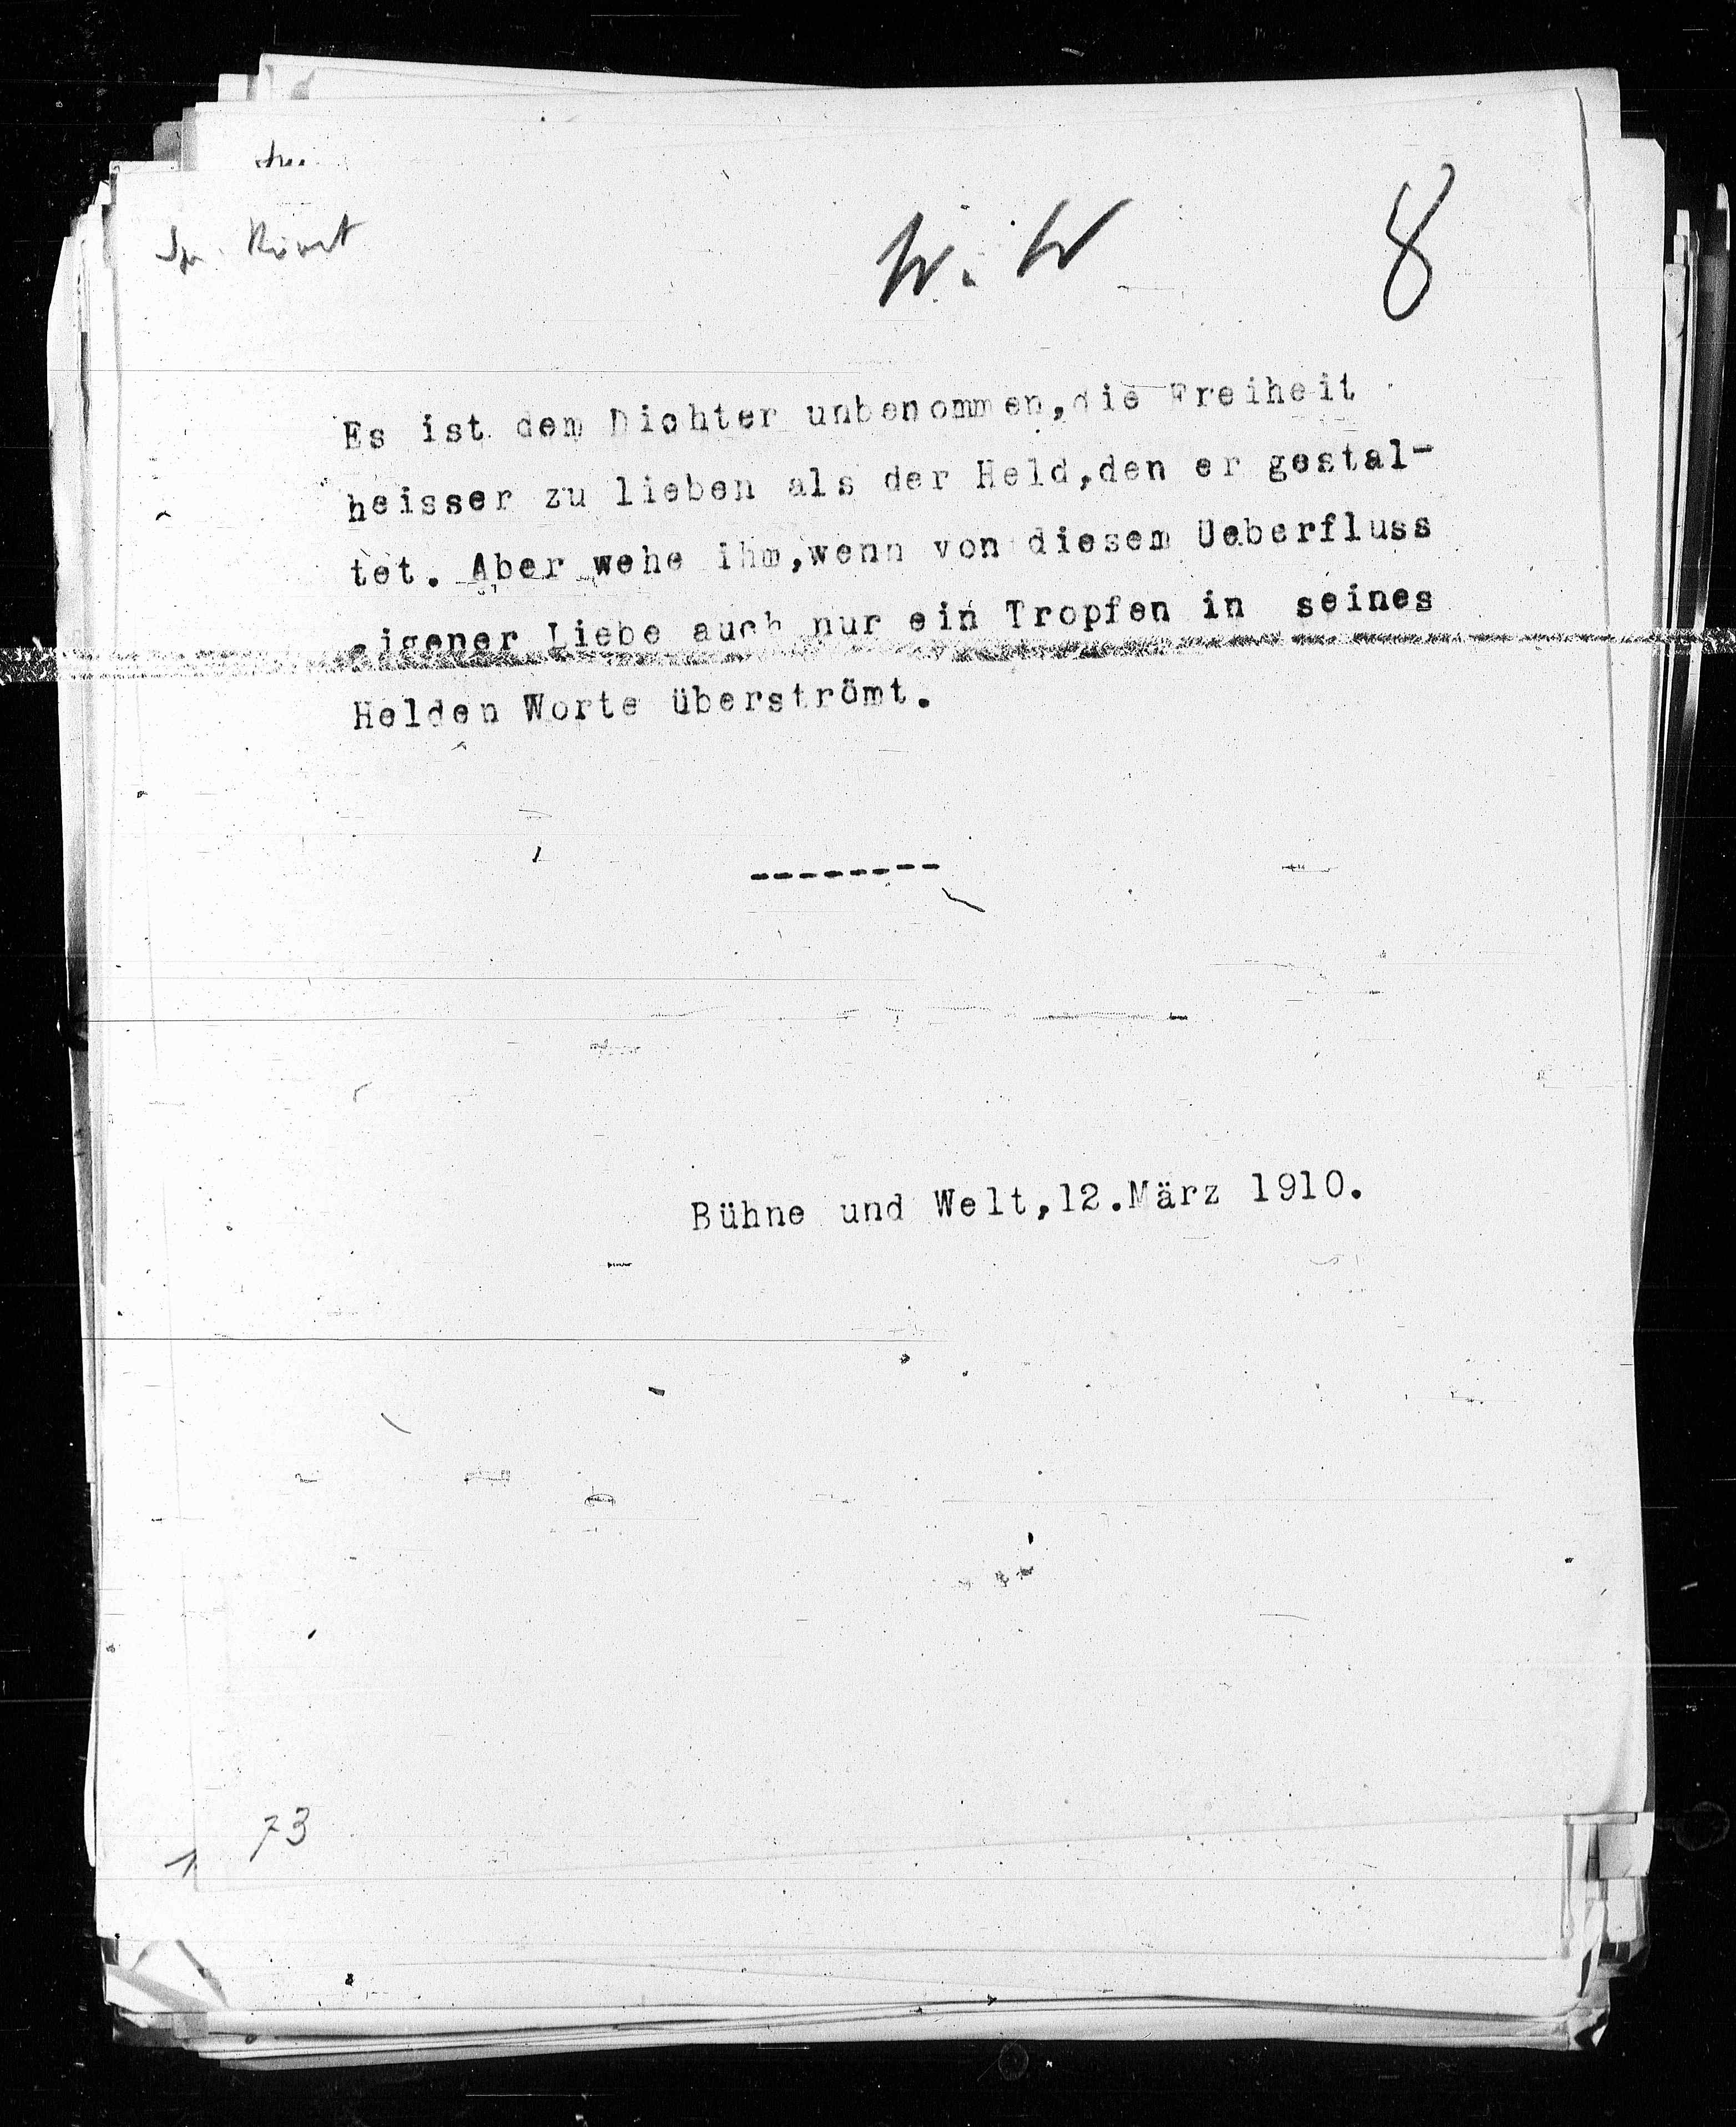 8
Es ist dem Dichter unbenommen,die Freiheit
heisser zu lieben als der Held,den er gestal-
tet. Aber wehe ihm,wenn von diesem Ueberfluss
eigener Liebe auch nur ein Tropfen in seines
Helden Worte überströmt.
--------
Bühne und Welt,12.März 1910.
73
1